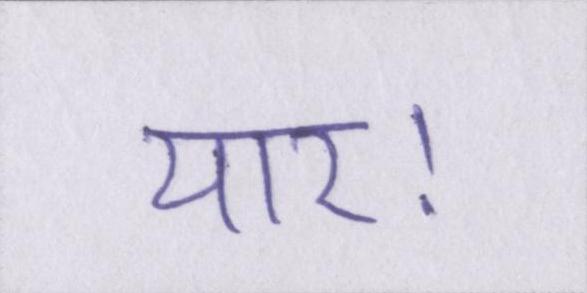 यार!